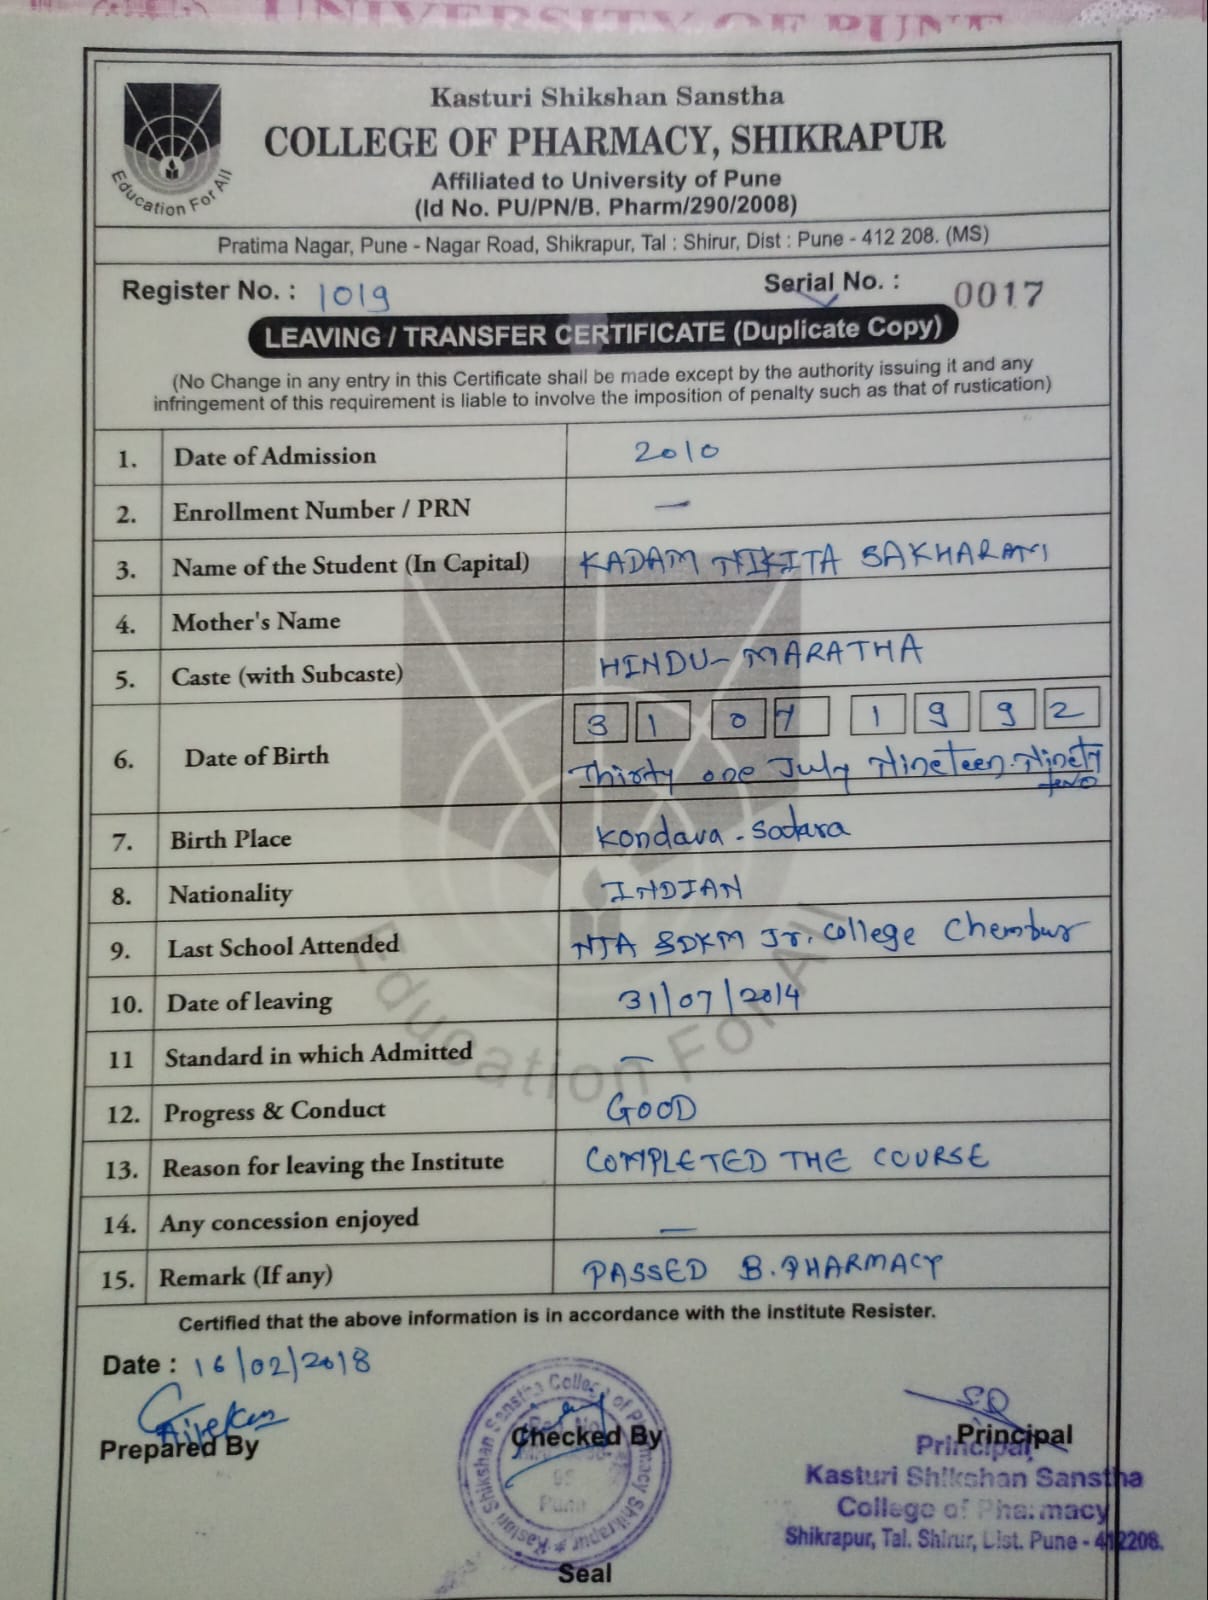 UNIVERSITY OF PUNE
Kasturi Shikshan Sanstha
COLLEGE OF PHARMACY, SHIKRAPUR
Affiliated to University of Pune
(Id No. PU/PN/B. Pharm/290/2008)
Education For All
Pratima Nagar, Pune - Nagar Road, Shikrapur, Tal : Shirur, Dist : Pune - 412 208. (MS)
Register No. : 1019 Serial No. : 0017
LEAVING / TRANSFER CERTIFICATE (Duplicate Copy)
(No Change in any entry in this Certificate shall be made except by the authority issuing it and any
infringement of this requirement is liable to involve the imposition of penalty such as that of rustication)
1. Date of Admission 2010
2. Enrollment Number / PRN —
3. Name of the Student (In Capital) KADAM NIKITA SAKHARAM
4. Mother's Name
5. Caste (with Subcaste) HINDU - MARATHA
6. Date of Birth 31 07 1992
Thirty one July Nineteen Ninety
two
7. Birth Place Kondava - Satara
8. Nationality INDIAN
9. Last School Attended NJA SDKM Jr. College Chembur
10. Date of leaving 31/07/2014
11 Standard in which Admitted —
12. Progress & Conduct GOOD
13. Reason for leaving the Institute COMPLETED THE COURSE
14. Any concession enjoyed —
15. Remark (If any) PASSED B. PHARMACY
Education For All
Certified that the above information is in accordance with the institute Resister.
Date : 16/02/2018
Prepared By Checked By Principal
Principal
Kasturi Shikshan Sanstha
College of Pharmacy
Shikrapur, Tal. Shirur, Dist. Pune - 412208.
Kasturi Shikshan Sanstha College of Pharmacy Shikrapur
Pune
Seal